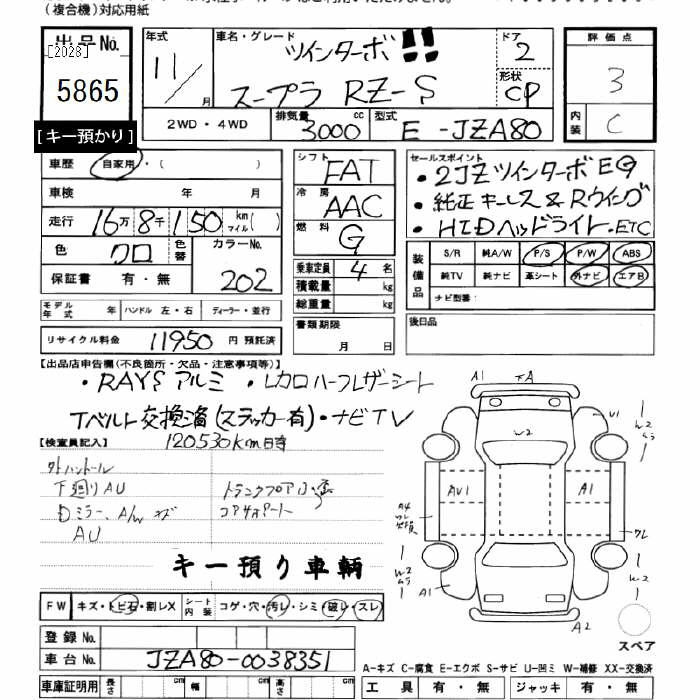 (複合機)対応用紙
出品No.
[2028]
5865
[キー預かり]
年式
11/
月
車名・グレード
ツインターボ!!
スープラ RZ-S
ドア
2
形状
CP
評価点
3
内装
C
2WD・4WD
排気量
3000
cc
型式
E-JZA80
車歴
自家用・( )
車検 年 月
走行 16万8千150 km マイル( )
色 クロ
色替
カラーNo.
202
保証書 有・無
モデル年式 年 ハンドル 左・右 ディーラー・並行
リサイクル料金 11950 円 預託済
シフト
FAT
冷房
AAC
燃料
G
乗車定員 4 名
積載量 kg
総重量 kg
書類期限
月 日
セールスポイント
・2JZツインターボEG
・純正キーレス&Rウイング
・HIDヘッドライト・ETC
装備品
S/R 純A/W P/S P/W ABS
純TV 純ナビ 革シート 外ナビ エアB
ナビ型番:
後日品
【出品店申告欄(不良箇所・欠品・注意事項等)】
・RAYSアルミ ・レカロハーフレザーシート
Tベルト交換済(ステッカー有)・ナビTV
120530km時
【検査員記入】
外ハンドル
下廻りAU
トランクフロア小
コアサポート
AU
キー預り車輌
FW キズ・トビ石・割レX
シート内装 コゲ・穴・汚レ・シミ・破レ・スレ
登録No.
車台No. JZA80-0038351
車庫証明用 長さ cm 幅 cm 高さ cm
A1
A
U1
W2
W2
AU1
A1
A4
ワレ
W2
W2
A1
A2
スペア
A-キズ C-腐食 E-エクボ S-サビ U-凹ミ W-補修 XX-交換済
工具 有・無 ジャッキ 有・無